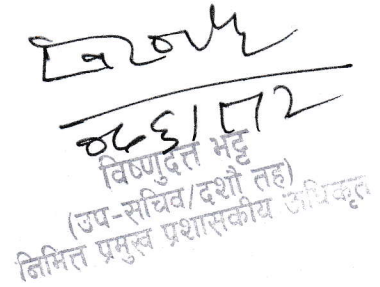 विष्णुदत्त भट्ट
(उप-सचिव/दशौं तह)
निमित्त प्रमुख प्रशासकीय अधिकृत